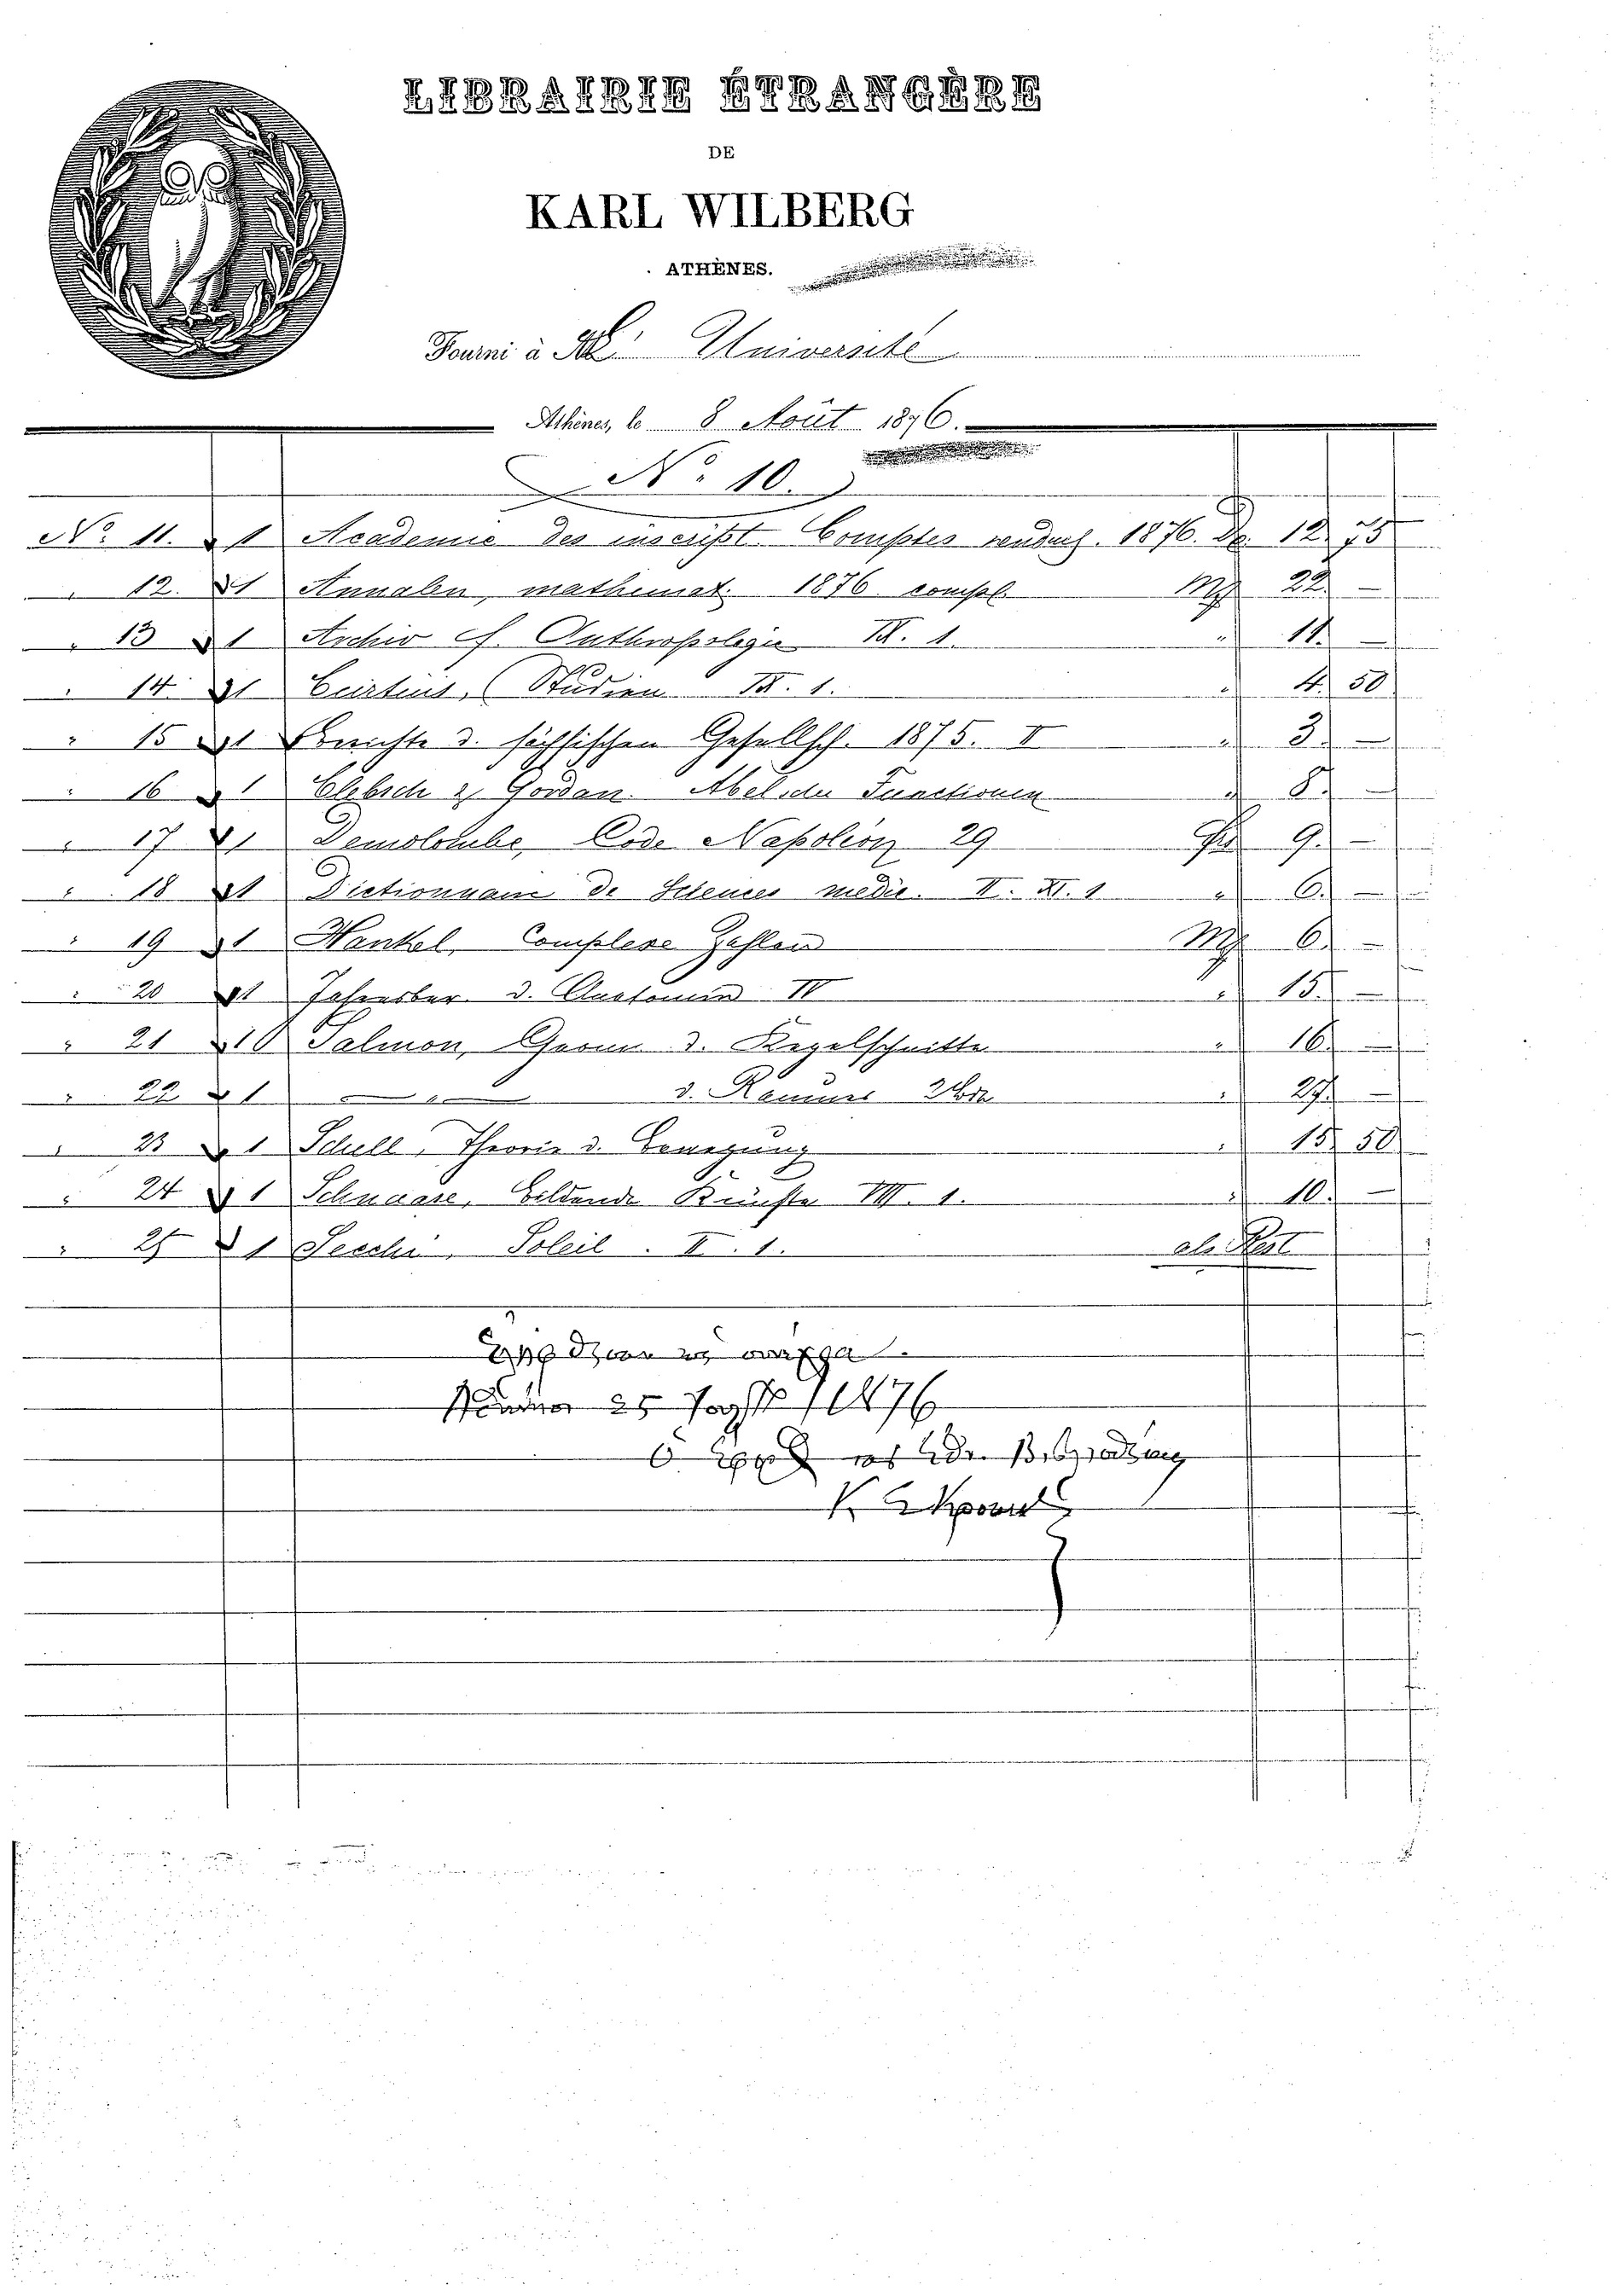 LIBRAIRIE ÉTRANGÈRE
DE
KARL WILBERG
ATHÈNES.
Fourni à Université
Athènes, le 8 Août 1876.
No. 10.
No. 11. 1 Academie des inscript. Comptes rendus. 1876. Dr. 12. 75
" 12. 1 Annalen, mathemat. 1876 compl. Mk 22. —
" 13 1 Archiv f. Anthropologie IX. 1. " 11. —
" 14 1 Curtius, Studien IX. 1. " 4. 50
" 15 1 Berichte d. sächsischen Gesellsch. 1875. II " 3. —
" 16 1 Clebsch & Gordan. Abelsche Functionen " 8. —
" 17 1 Demolombe, Code Napoléon 29 Frs 9. —
" 18 1 Dictionnaire de Sciences medic. II. XI. 1 " 6. —
" 19 1 Hankel, Complexe Zahlen Mk 6. —
" 20 1 Jahresber. d. Anatomie IV " 15. —
" 21 1 Salmon, Geom. d. Kegelschnitte " 16. —
" 22 1 — " — d. Raumes 2 Bde " 27. —
" 23 1 Schell, Theorie d. Bewegung " 15. 50
" 24 1 Schnaase, bildende Künste VIII. 1. " 10. —
" 25 1 Secchi, Soleil. II. 1. als Rest
25 1876